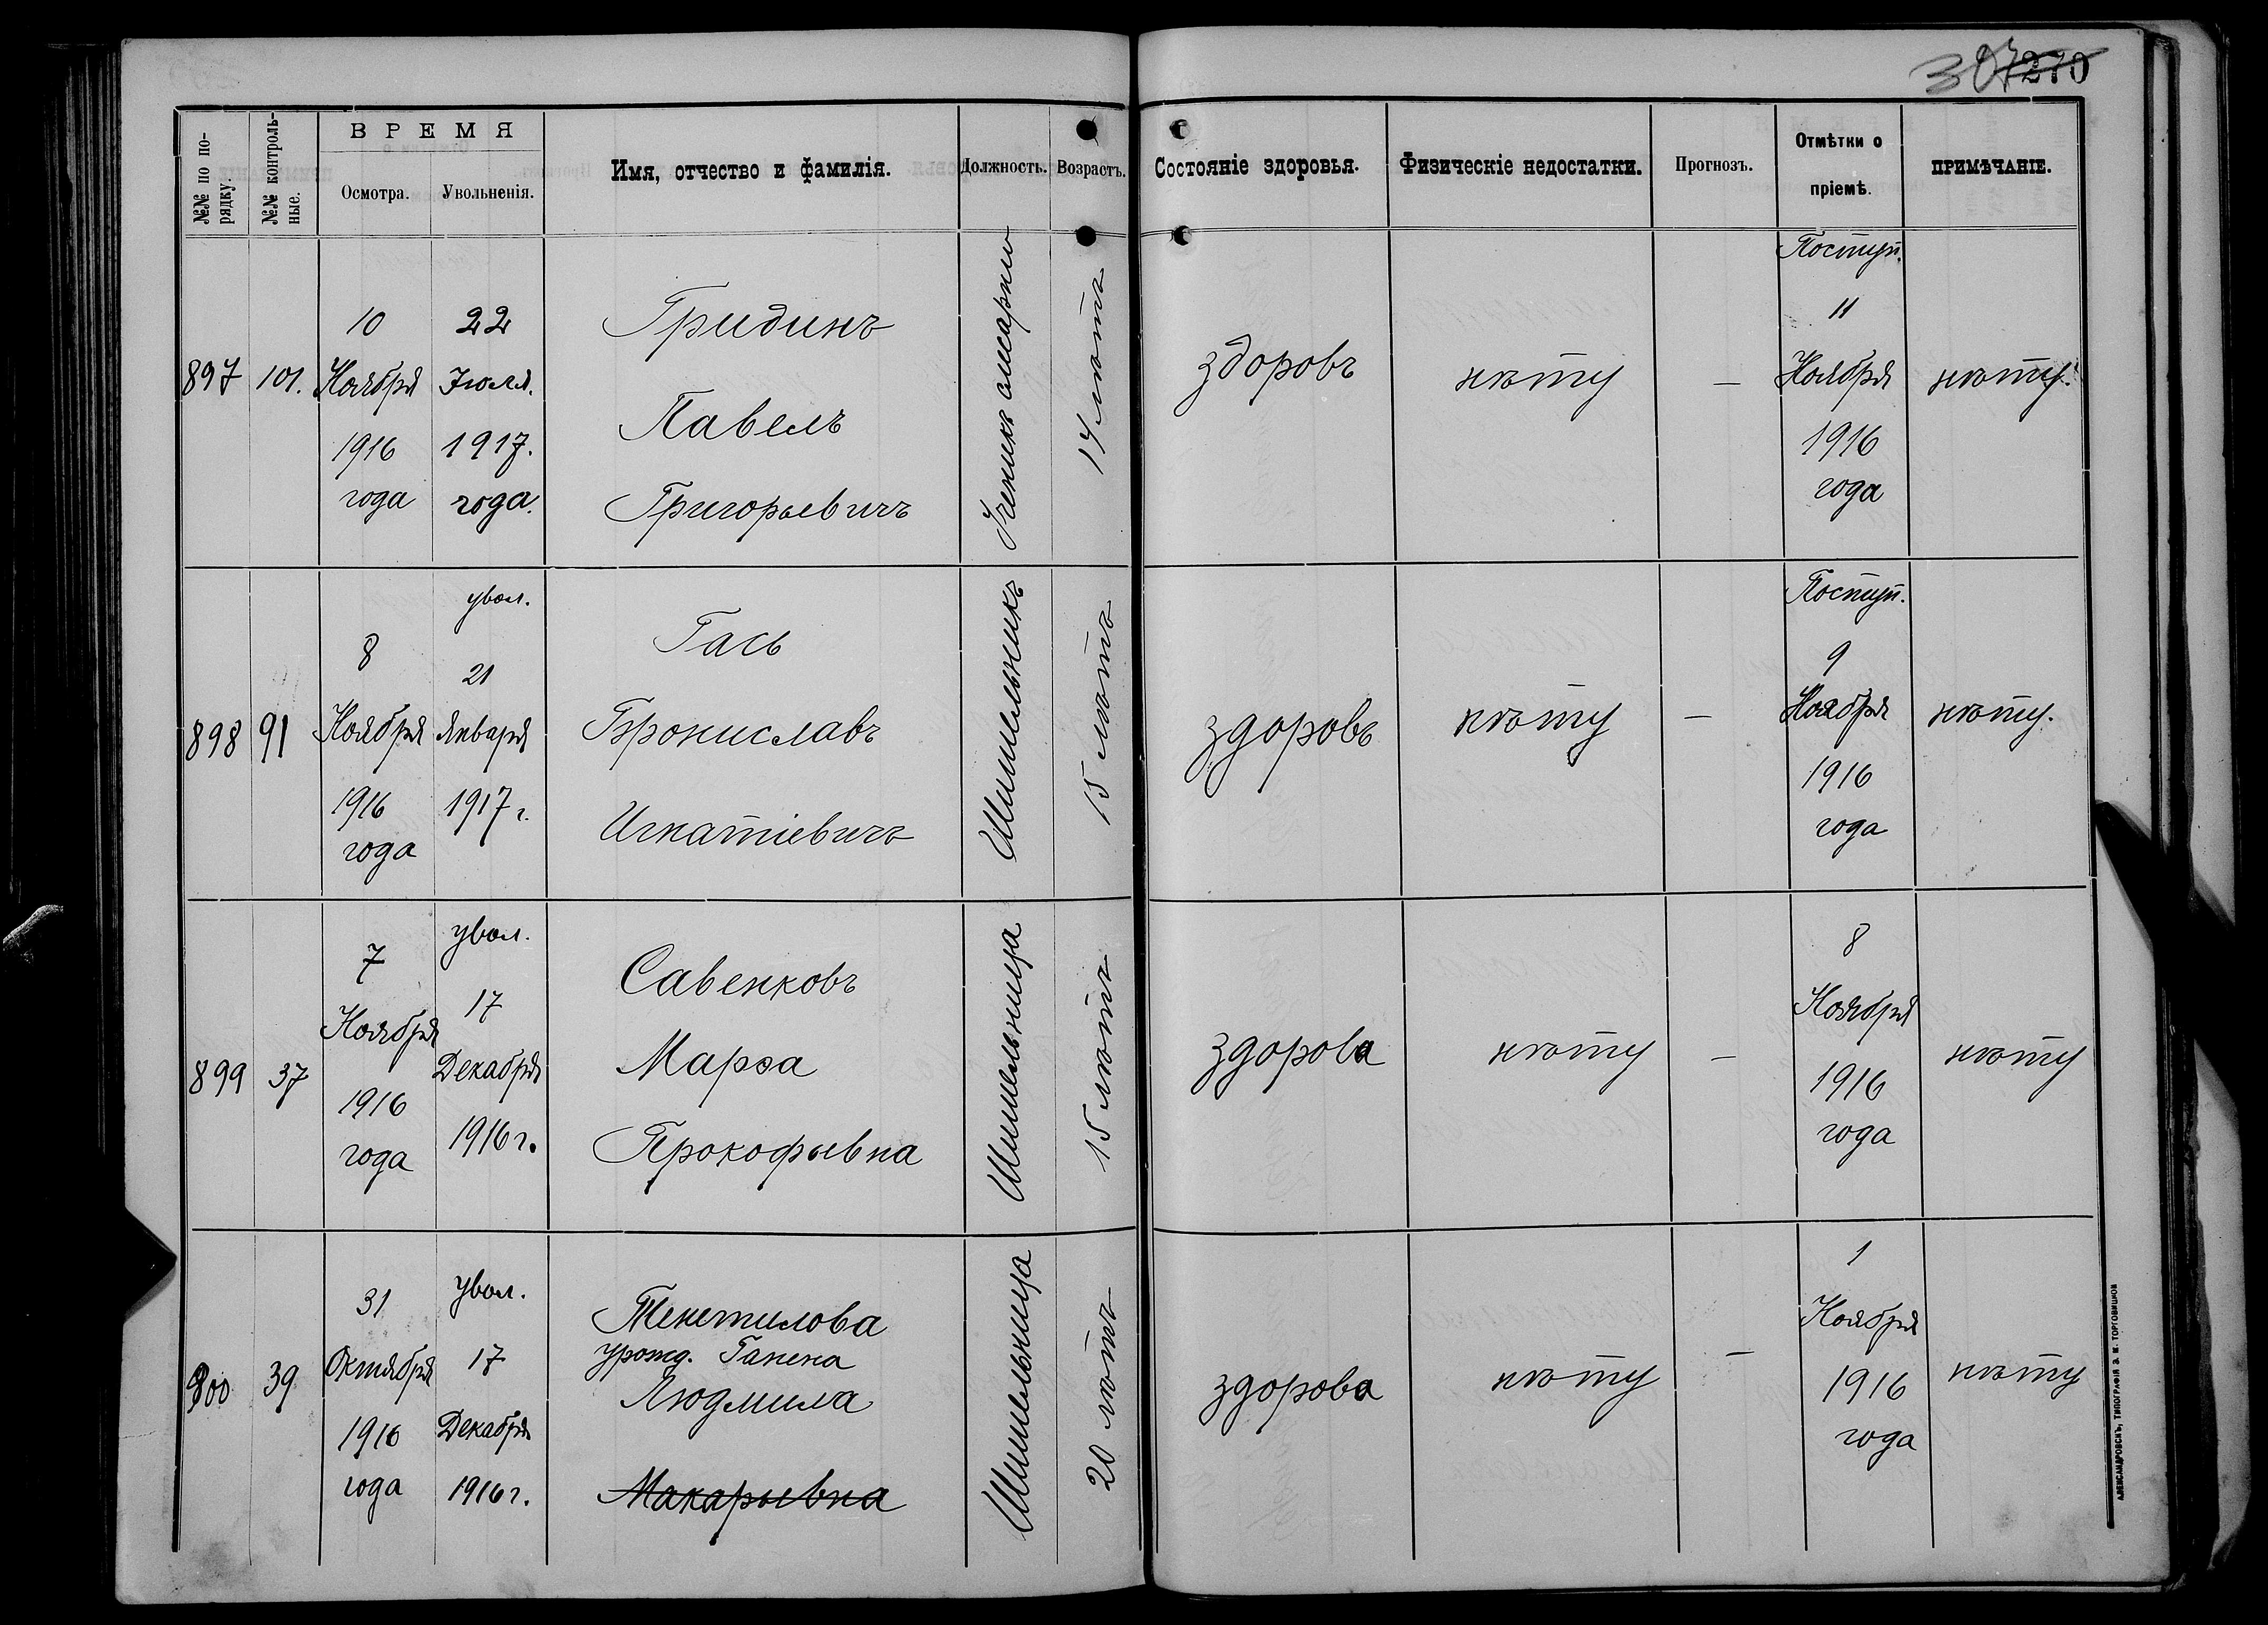 307 270
№№ по по-
рядку.
№№ контроль-
ные.
ВРЕМЯ
Осмотра.
Увольненія.
Имя, отчество и фамилія.
Должность.
Возрастъ.
Состояніе здоровья.
Физическіе недостатки.
Прогнозъ.
Отмѣтки о
пріемѣ.
ПРИМѢЧАНІЕ.
897
101.
10
Ноября
1916
года
22
Іюля.
1917.
года.
Гридинъ
Павелъ
Григорьевичъ
Ученикъ
14 лѣтъ
здоровъ
нѣту
—
Поступ.
11
Ноября
1916
года
нѣту.
898
91
8
Ноября
1916
года
увол.
21
Января
1917 г.
Гась
Брониславъ
Игнатіевичъ
Шпильникъ
15 лѣтъ
здоровъ
нѣту
—
Поступ.
9
Ноября
1916
года
нѣту.
899
37
7
Ноября
1916
года
увол.
17
Декабря
1916 г.
Савенковъ
Марѳа
Прокофьевна
Шпильница
15 лѣтъ
здорова
нѣту
—
8
Ноября
1916
года
нѣту
900
39
31
Октября
1916
года
увол.
17
Декабря
1916 г.
урожд. Ганена
Людмила
Макарьевна
Шпильница
20 лѣтъ
здорова
нѣту
—
1
Ноября
1916
года
нѣту
АЛЕКСАНДРОВСКЪ, ТИПОГРАФІЯ З. М. ТОРГОВИЦКОВ